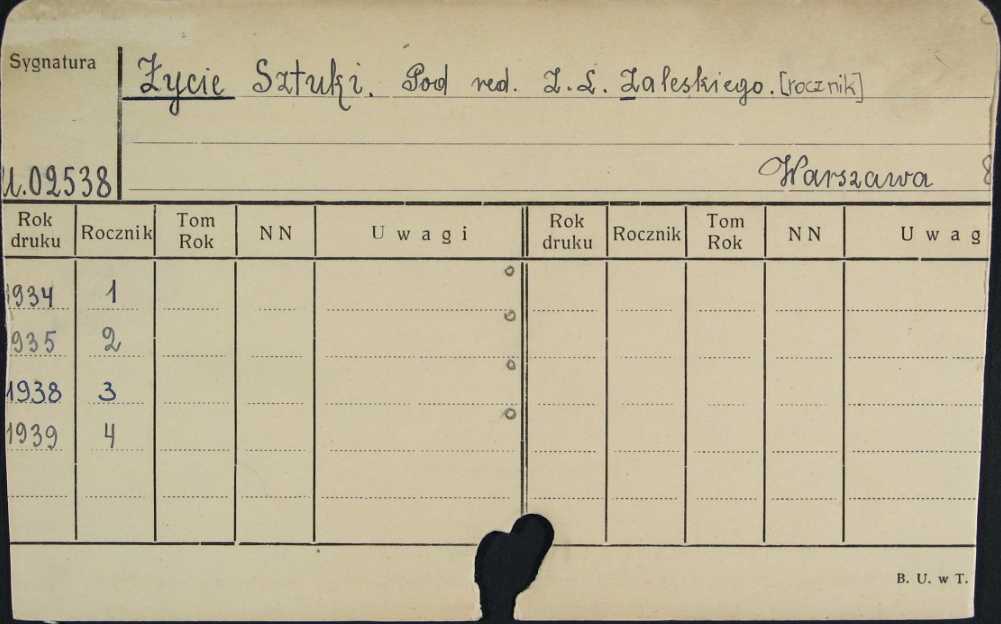 Sygnatura
Życie Sztuki. Pod red. Z. L. Zaleskiego. [rocznik]
Warszawa 8
U.02538
Rok druku Rocznik Tom Rok NN Uwagi Rok druku Rocznik Tom Rok NN Uwag
1934 1
1935 2
1938 3
1939 4
B. U. w T.